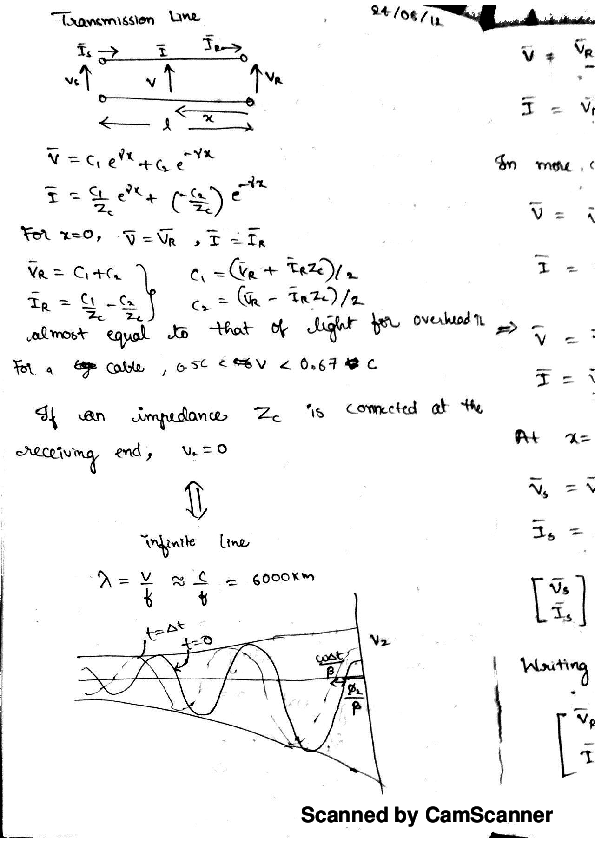 Transmission Line
24/08/12
I̅s → I̅ I̅R →
Vs V VR
x
l
V̅ = C₁ e^γx + C₂ e^-γx
I̅ = C₁/Zc e^γx + (-C₂/Zc) e^-γx
For x=0, V̅ = V̅R , I̅ = I̅R
V̅R = C₁ + C₂ } C₁ = (V̅R + I̅R Zc)/2
I̅R = C₁/Zc - C₂/Zc C₂ = (V̅R - I̅R Zc)/2
almost equal to that of light for overhead
For a cable, 0.5C < V < 0.67 C
If an impedance Zc is connected at the
receiving end, V₂ = 0
⇕
infinite line
λ = V/f ≈ C/f = 6000km
t=Δt
t=0
V₂
ωΔt/β
ϕ₂/β
V̅ = V̅R
I̅ =
In more,
V̅ =
I̅ =
⇒ V̅ =
I̅ =
At x=
V̅s =
I̅s =
[V̅s
I̅s]
Writing
[V̅R
I̅
Scanned by CamScanner